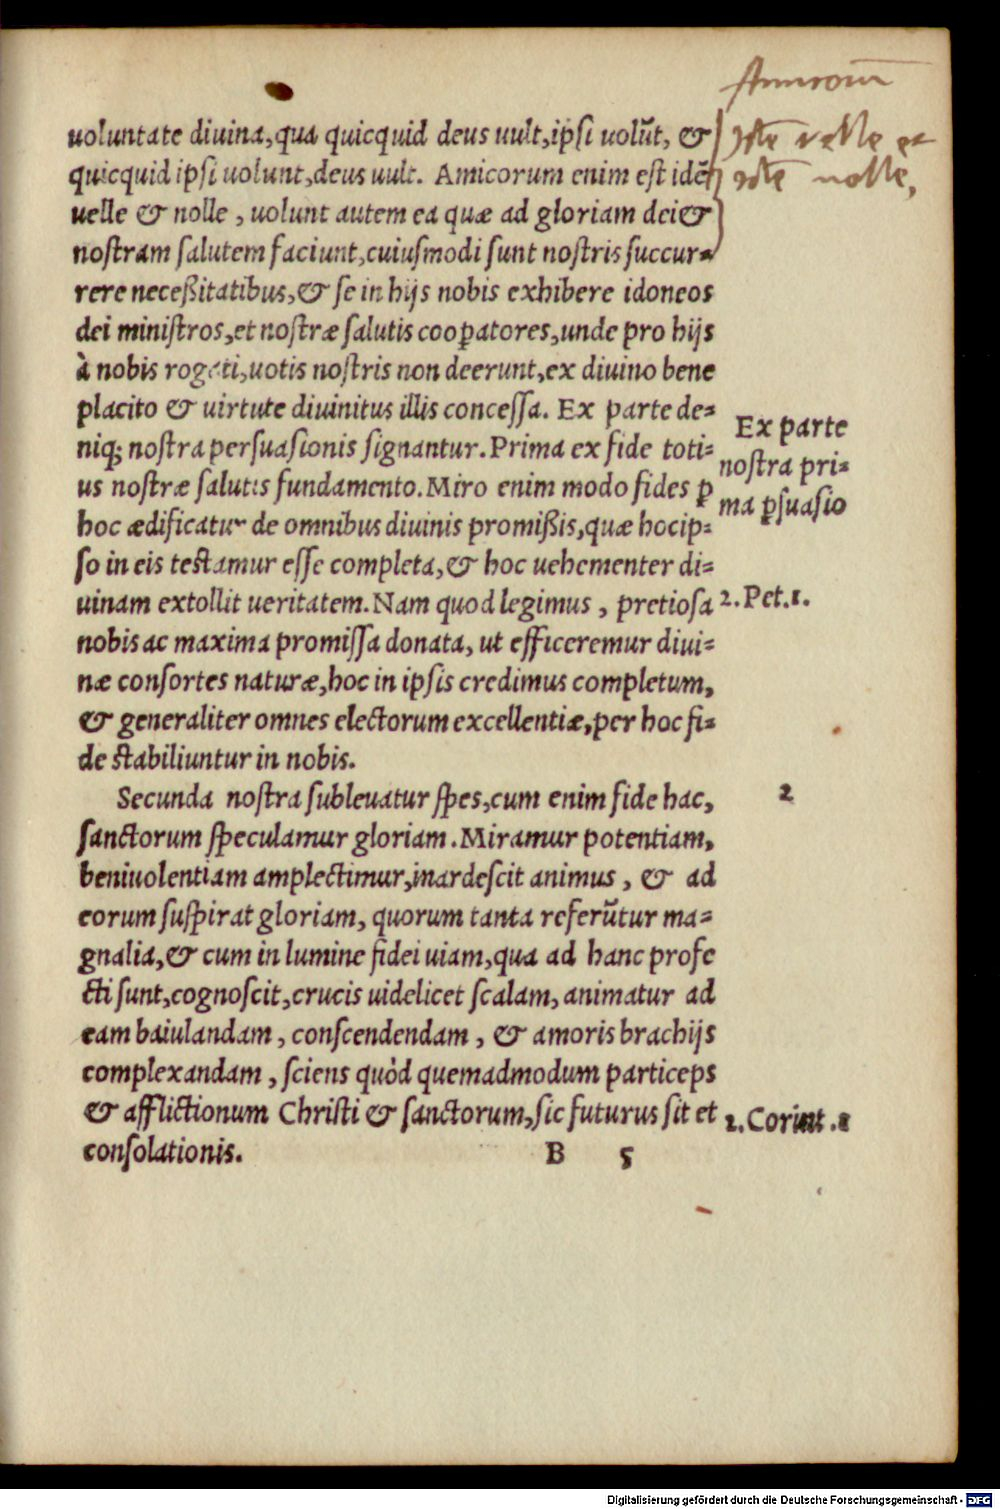 Amicorū
idē velle et
idē nolle,
uoluntate diuina, qua quicquid deus uult, ipsi uolūt, &
quicquid ipsi uolunt, deus uult. Amicorum enim est idē
uelle & nolle, uolunt autem ea quæ ad gloriam dei &
nostram salutem faciunt, cuiusmodi sunt nostris succur=
rere necessitatibus, & se in hijs nobis exhibere idoneos
dei ministros, et nostræ salutis coop̄atores, unde pro hijs
à nobis rogati, uotis nostris non deerunt, ex diuino bene
placito & uirtute diuinitus illis concessa. Ex parte de=
niq; nostra persuasionis signantur. Prima ex fide toti=
us nostræ salutis fundamento. Miro enim modo fides p̱
hoc ædificatur de omnibus diuinis promissis, quæ hoc ip=
so in eis testamur esse completa, & hoc uehementer di=
uinam extollit ueritatem. Nam quod legimus, pretiosa
nobis ac maxima promissa donata, ut efficeremur diui=
næ consortes naturæ, hoc in ipsis credimus completum,
& generaliter omnes electorum excellentiæ, per hoc fi=
de stabiliuntur in nobis.
Ex parte
nostra pri=
ma p̱suasio
2. Pet. 1.
Secunda nostra subleuatur spes, cum enim fide hac,
sanctorum speculamur gloriam. Miramur potentiam,
beniuolentiam amplectimur, inardescit animus, & ad
eorum suspirat gloriam, quorum tanta referūtur ma=
gnalia, & cum in lumine fidei uiam, qua ad hanc profe
cti sunt, cognoscit, crucis uidelicet scalam, animatur ad
eam baiulandam, conscendendam, & amoris brachijs
complexandam, sciens quòd quemadmodum particeps
& afflictionum Christi & sanctorum, sic futurus sit et
consolationis.
2
2. Corint. 1
B 5
Digitalisierung gefördert durch die Deutsche Forschungsgemeinschaft - DFG